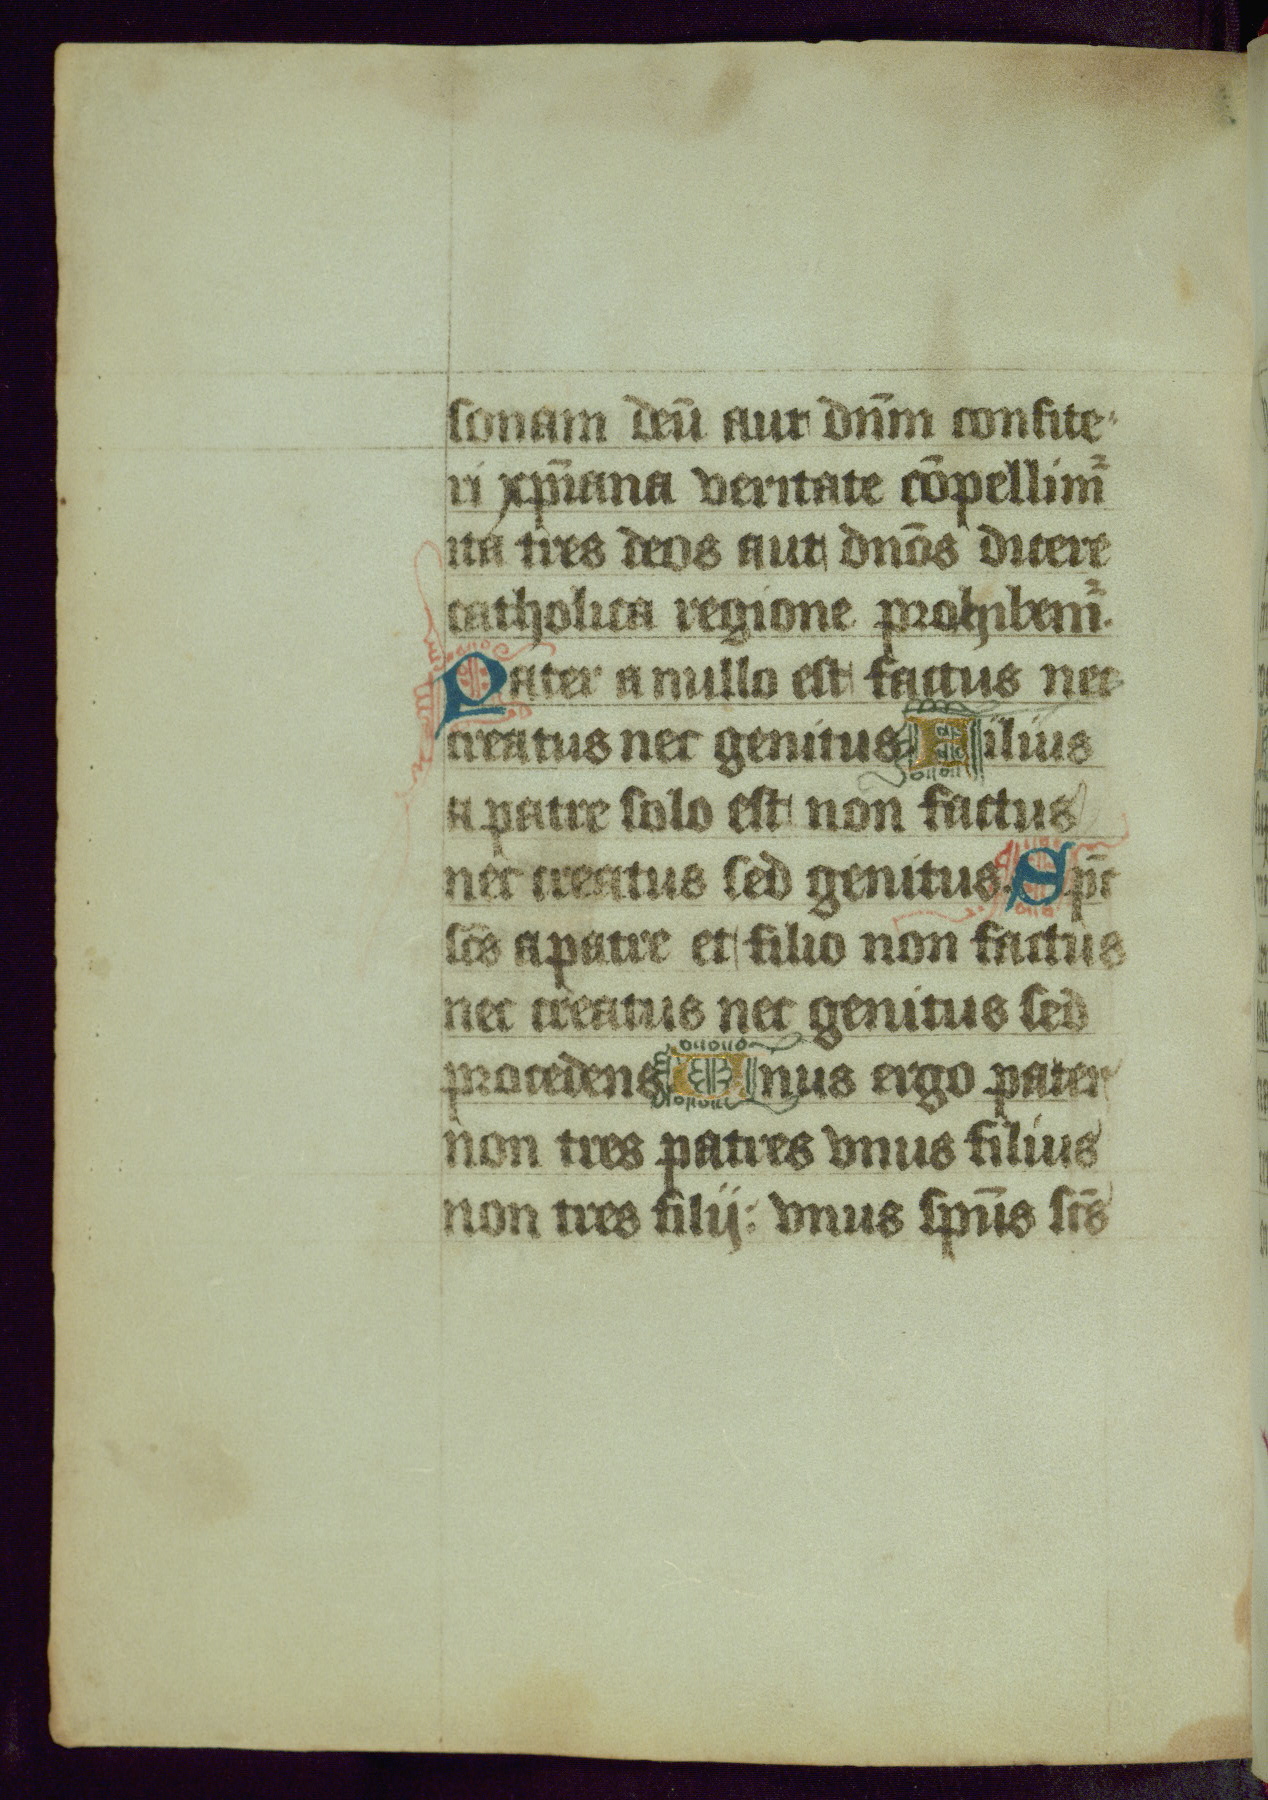 sonam deū aut dn̄m confite-
ri xp̄iana veritate cōpellim᷒
ita tres deos aut dnōs dicere
catholica regione prohibem᷒.
Pater a nullo est factus nec
creatus nec genitus Filius
a patre solo est non factus
nec creatus sed genitus. Sp̄c
sc̄s a patre et filio non factus
nec creatus nec genitus sed
procedens Unus ergo pater
non tres patres vnus filius
non tres filij: vnus spūs sc̄s